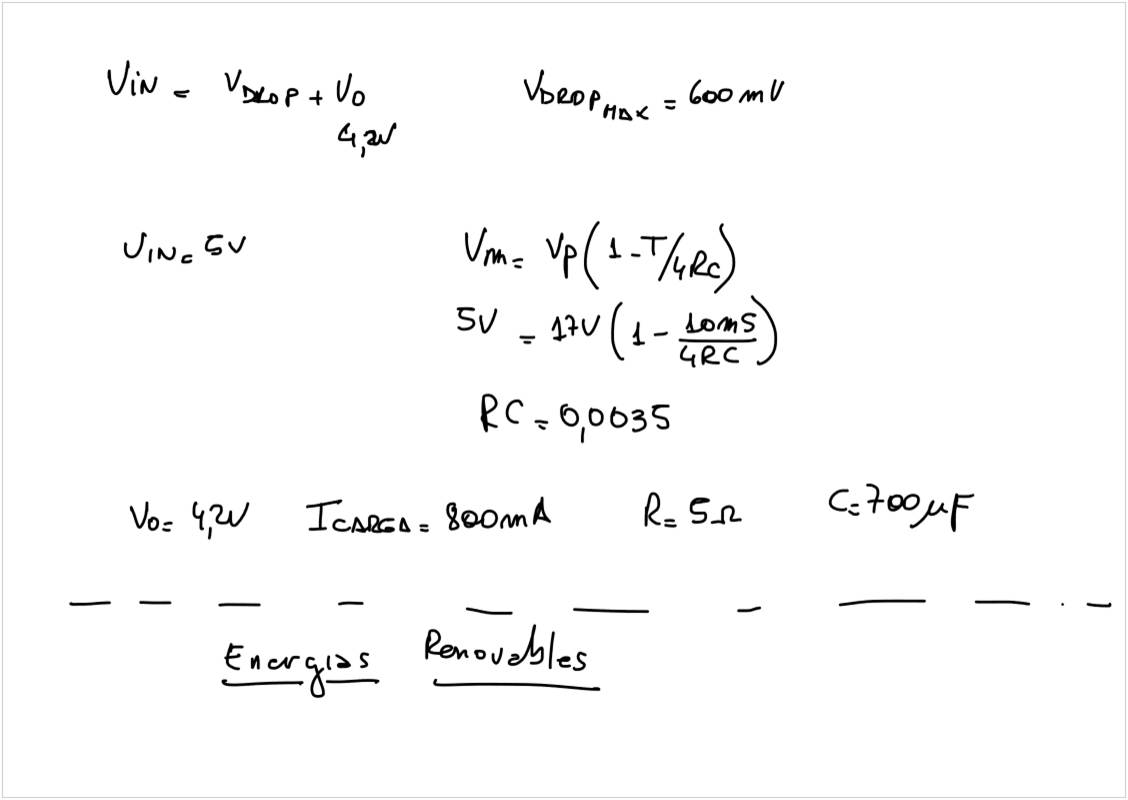 VIN = VDROP + VO VDROP MAX = 600 mV
4,2V
VIN = 5V Vm = Vp (1 - T/4RC)
5V = 17V (1 - 10mS/4RC)
RC = 0,0035
Vo = 4,2V ICARGA = 800mA R = 5Ω C = 700μF
Energias Renovables